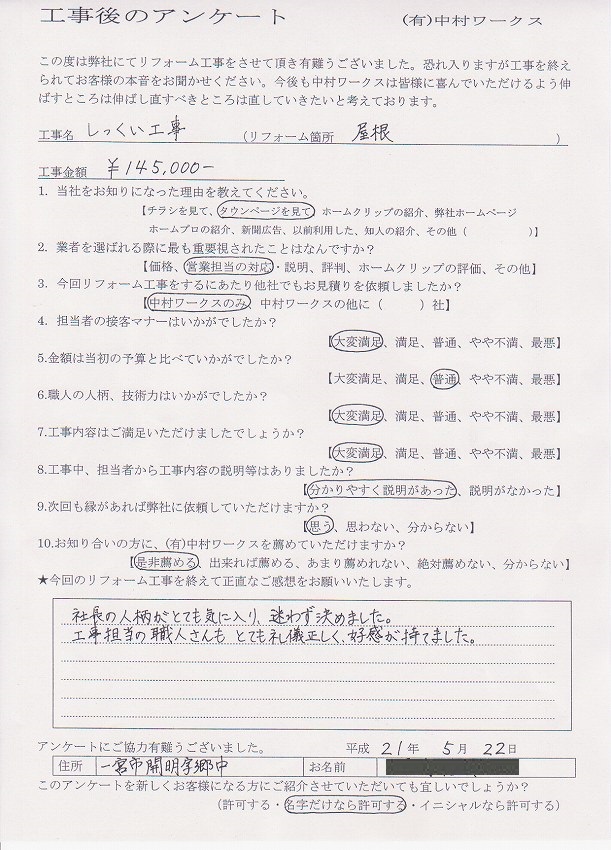 工事後のアンケート (有)中村ワークス
この度は弊社にてリフォーム工事をさせて頂き有難うございました。恐れ入りますが工事を終え
られてお客様の本音をお聞かせください。今後も中村ワークスは皆様に喜んでいただけるよう伸
ばすところは伸ばし直すべきところは直していきたいと考えております。
工事名 しっくい工事 (リフォーム箇所 屋根 )
工事金額 ¥145,000-
1. 当社をお知りになった理由を教えてください。
【チラシを見て、タウンページを見て、ホームクリップの紹介、弊社ホームページ
ホームプロの紹介、新聞広告、以前利用した、知人の紹介、その他( )】
2. 業者を選ばれる際に最も重要視されたことはなんですか?
【価格、営業担当の対応・説明、評判、ホームクリップの評価、その他】
3. 今回リフォーム工事をするにあたり他社でもお見積りを依頼しましたか?
【中村ワークスのみ、中村ワークスの他に( )社】
4. 担当者の接客マナーはいかがでしたか?
【大変満足、満足、普通、やや不満、最悪】
5.金額は当初の予算と比べていかがでしたか?
【大変満足、満足、普通、やや不満、最悪】
6.職人の人柄、技術力はいかがでしたか?
【大変満足、満足、普通、やや不満、最悪】
7.工事内容はご満足いただけましたでしょうか?
【大変満足、満足、普通、やや不満、最悪】
8.工事中、担当者から工事内容の説明等はありましたか?
【分かりやすく説明があった、説明がなかった】
9.次回も縁があれば弊社に依頼していただけますか?
【思う、思わない、分からない】
10.お知り合いの方に、(有)中村ワークスを薦めていただけますか?
【是非薦める、出来れば薦める、あまり薦めれない、絶対薦めない、分からない】
★今回のリフォーム工事を終えて正直なご感想をお願いいたします。
社長の人柄がとても気に入り、迷わず決めました。
工事担当の職人さんも とても礼儀正しく、好感が持てました。
アンケートにご協力有難うございました。 平成 21年 5月 22日
住所 一宮市開明字郷中 お名前
このアンケートを新しくお客様になる方にご紹介させていただいても宜しいでしょうか?
(許可する・名字だけなら許可する・イニシャルなら許可する)